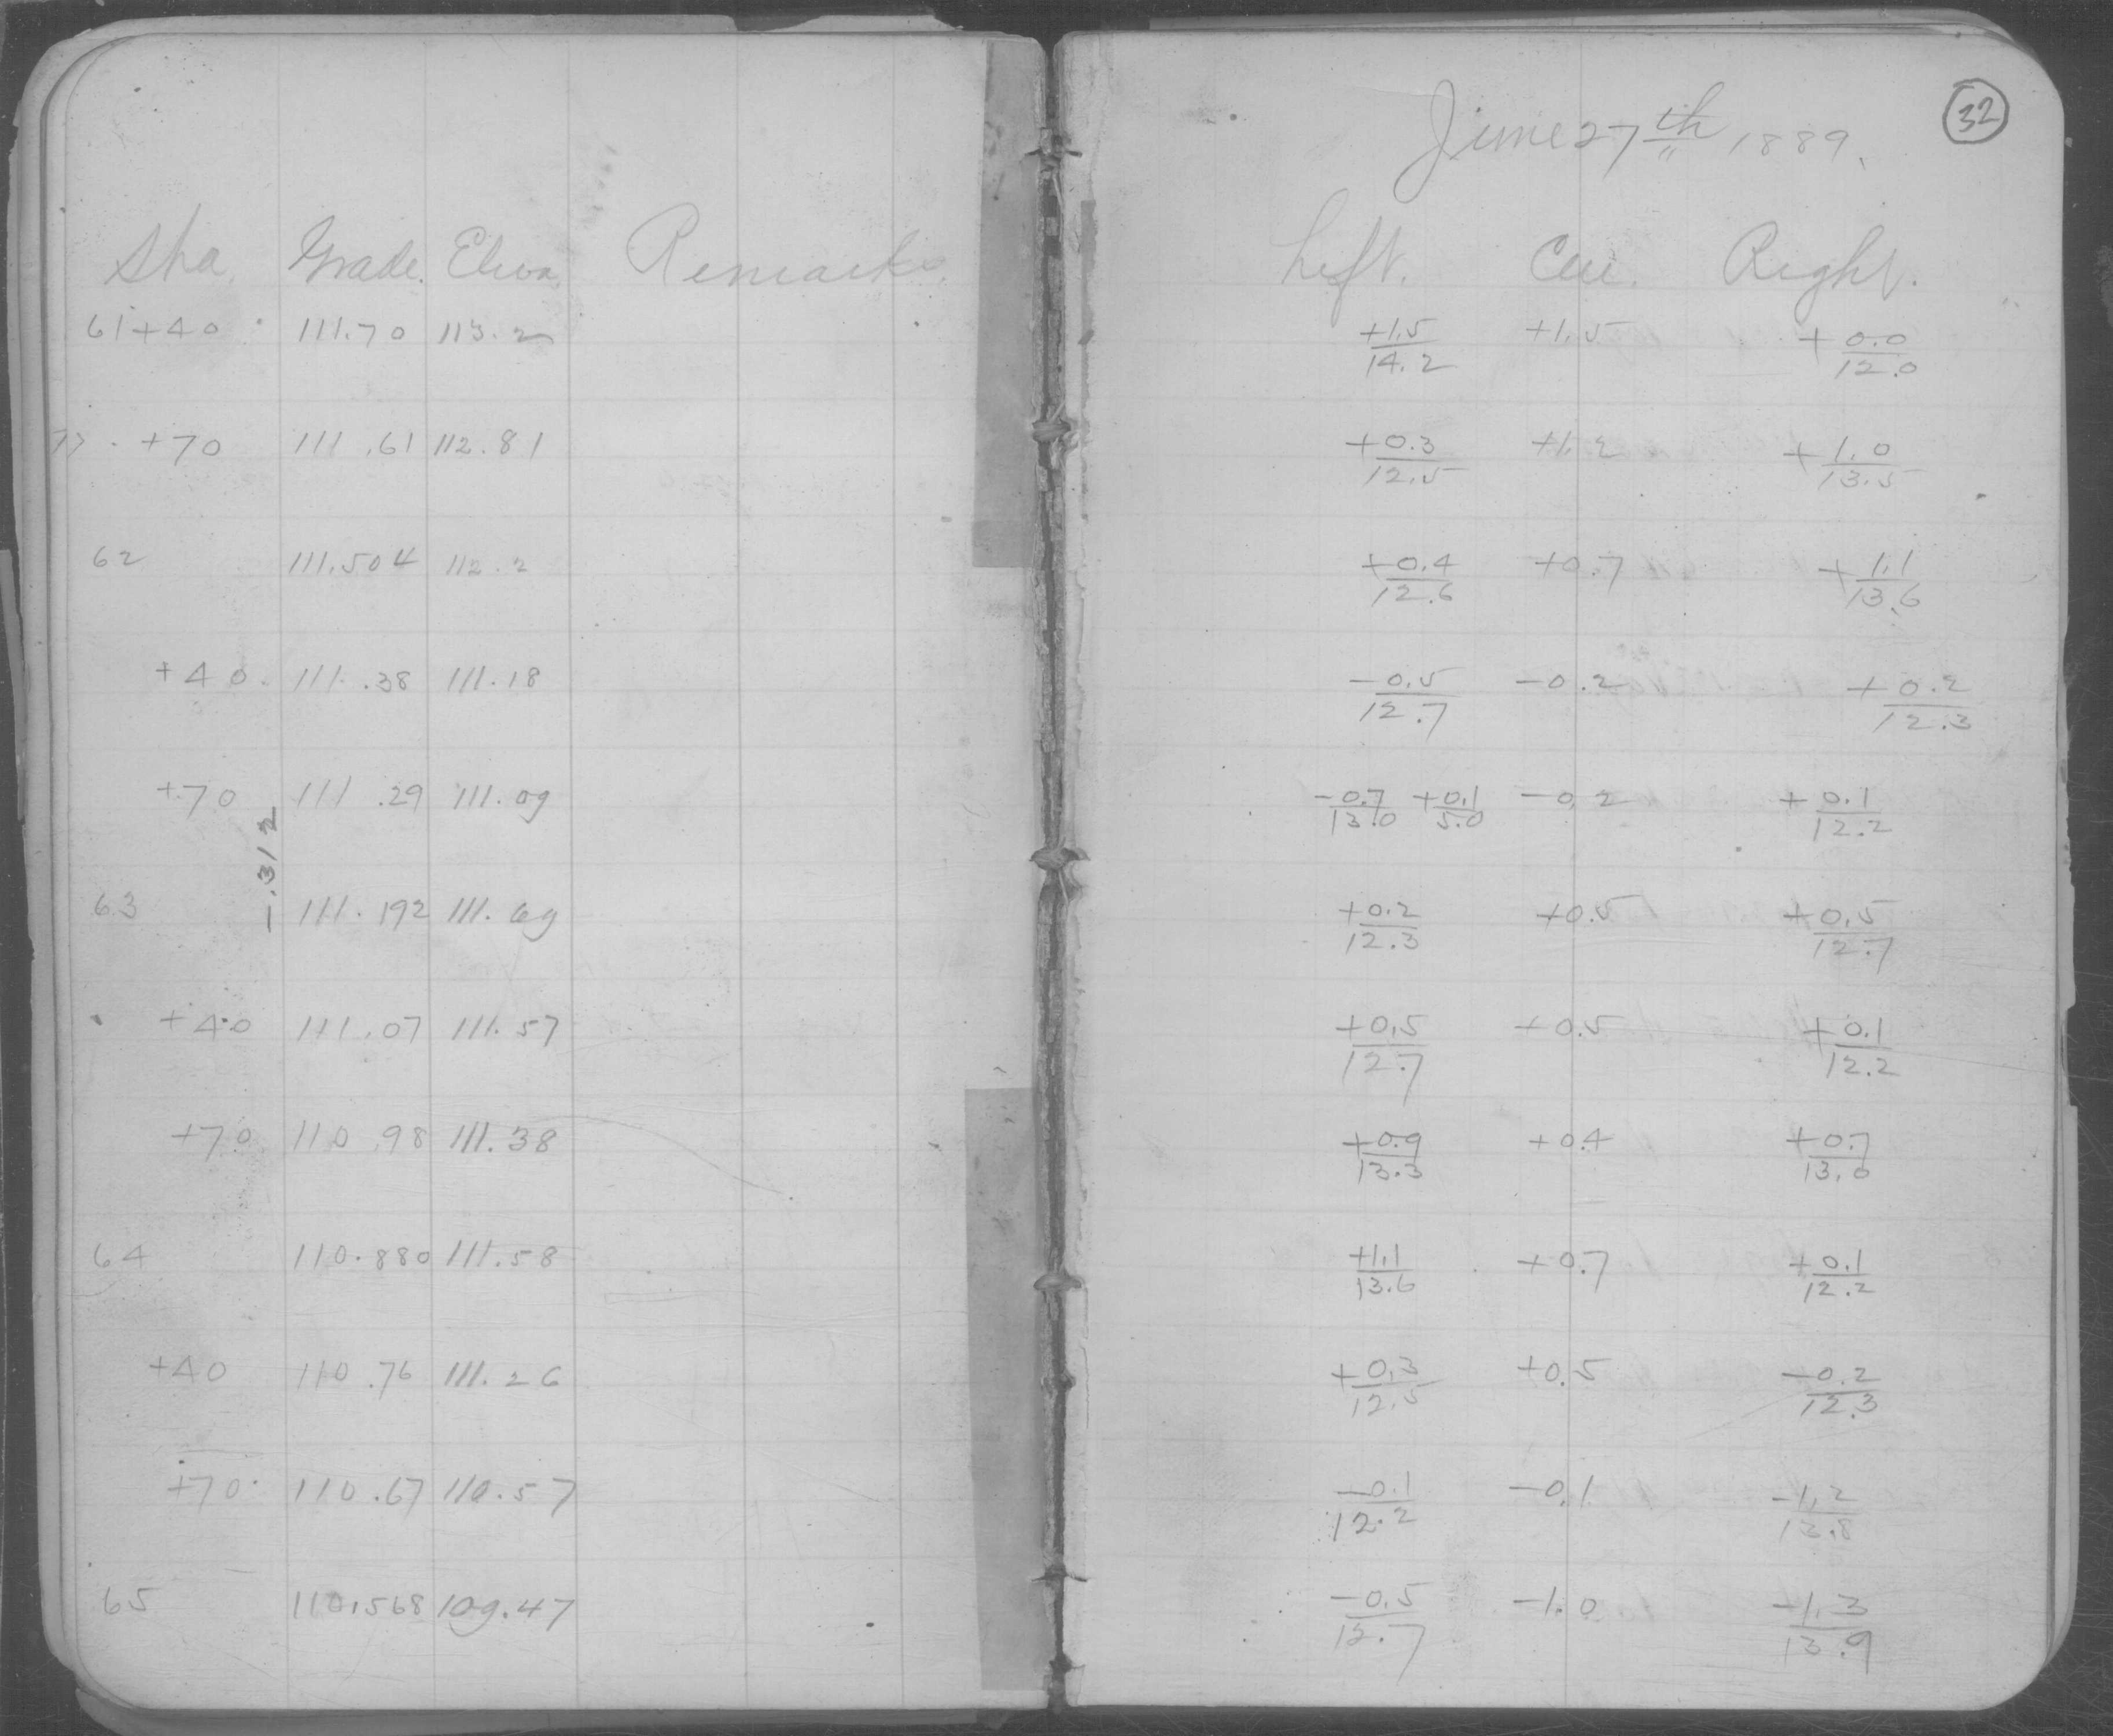 June 27th 1889.
32
Sta. Grade. Eleva. Remarks. Left. Cen. Right.
61+40 111.70 113.2 +1.5/14.2 +1.5 +0.0/12.0
+70 111.61 112.81 +0.3/12.5 +1.2 +1.0/13.5
62 111.504 112.2 +0.4/12.6 +0.7 +1.1/13.6
+40 111.38 111.18 -0.5/12.7 -0.2 +0.2/12.3
+70 111.29 111.09 -0.7/13.0 +0.1/5.0 -0.2 +0.1/12.2
-.312
63 111.192 111.69 +0.2/12.3 +0.5 +0.5/12.7
+40 111.07 111.57 +0.5/12.7 +0.5 +0.1/12.2
+70 110.98 111.38 +0.9/13.3 +0.4 +0.7/13.0
64 110.880 111.58 +1.1/13.6 +0.7 +0.1/12.2
+40 110.76 111.26 +0.3/12.5 +0.5 -0.2/12.3
+70 110.67 110.57 -0.1/12.2 -0.1 -1.2/13.8
65 110.568 109.47 -0.5/12.7 -1.0 -1.3/13.9